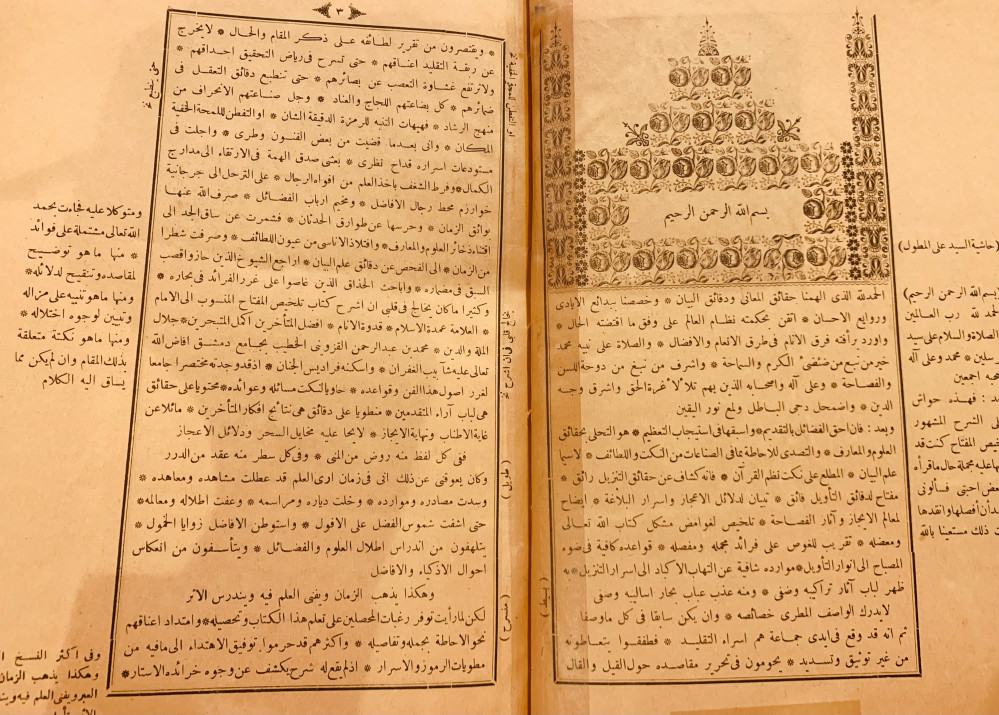 بسم الله الرحمن الرحيم
الحمد لله الذى الهمنا حقائق المعانى ودقائق البيان * وخصصنا ببدائع الايادى
وروايع الاحسان * اتقن بحكمته نظام العالم على وفق ما اقتضته الحال *
واورد برأفته فرق الانام فى طرق الانعام والافضال * والصلاة على نبيه محمد
خير من نبع من ضئضئ الكرم والسماحة * واشرف من نبغ من دوحة اللسن
والفصاحة * وعلى آله واصحابه الذين بهم تلألأ غرة الحق واشرق وجه
الدين * واضمحل دجى الباطل ولمع نور اليقين
وبعد : فان احق الفضائل بالتقديم * واسبقها فى استيجاب التعظيم * هو التحلى بحقائق
العلوم والمعارف * والتصدى للاحاطة بما فى الصناعات من النكت واللطائف * لاسيما
علم البيان * المطلع على نكت نظم القرآن * فانه كشاف عن حقائق التنزيل رائق *
مفتاح لدقائق التأويل فائق * تبيان لدلائل الاعجاز واسرار البلاغة * ايضاح
لمعالم الايجاز وآثار الفصاحة * تلخيص لغوامض مشكل كتاب الله تعالى
ومعضله * تقريب للغوص على فرائد مجمله ومفصله * قواعده كافية فى ضوء
المصباح الى انوار التأويل * موارده شافية عن التهاب الاكباد الى اسرار التنزيل * به
ظهر لباب آثار تراكيبه وضفى * ومنه عذب عباب بحار اساليبه وصفى
لايدرك الواصف المطرى خصائصه * وان يكن سابقا فى كل ماوصفا
ثم انه قد وقع فى ايدى جماعة هم اسراء التقليد * فطفقوا يتعاطونه
من غير توثيق وتسديد * يحومون فى تحرير مقاصده حول القيل والقال
(حاشية السيد على المطول)
(بسم الله الرحمن الرحيم)
لله رب العالمين
الصلاة والسلام على سيد
محمد وعلى آله
اجمعين
فهذه حواش
الشرح المشهور
المفتاح كنت قد
مستعينا بالله
(بسيط)
٣
* ويقتصرون من تقرير لطائفه على ذكر المقام والحال * لايخرج
عن ربقة التقليد اعناقهم * حتى تسرح فى رياض التحقيق احداقهم *
ولا ترتفع غشاوة التعصب عن بصائرهم * حتى تنطبع دقائق التعقل فى
ضمائرهم * كل بضاعتهم اللجاج والعناد * وجل صناعتهم الانحراف عن
منهج الرشاد * فهيهات التنبه للرمزة الدقيقة الشان * او التفطن للمحة الخفية
المكان * وانى بعدما قضيت من بعض الفنون وطرى * واجلت فى
مستودعات اسراره قداح نظرى * بعثنى صدق الهمة فى الارتقاء الى مدارج
الكمال * وفرط الشغف باخذ العلم من افواه الرجال * على الترحل الى جرجانية
خوارزم محط رجال الافاضل * ومخيم ارباب الفضائل * صرف الله عنها
بوائق الزمان * وحرسها عن طوارق الحدثان * فشمرت عن ساق الجد الى
اقتناء ذخائر العلوم والمعارف * وافتلاذ الاناسى من عيون اللطائف * وصرفت شطرا
من الزمان * الى الفحص عن دقائق علم البيان * اراجع الشيوخ الذين حازوا قصب
السبق فى مضماره * واباحث الحذاق الذين غاصوا على غرر الفرائد فى بحاره *
وكثيرا ما كان يخالج فى قلبى ان اشرح كتاب تلخيص المفتاح المنسوب الى الامام
* العلامة عمدة الاسلام * قدوة الانام * افضل المتأخرين اكمل المتبحرين * جلال
الملة والدين * محمد بن عبدالرحمن القزوينى الخطيب بجامع دمشق افاض الله
تعالى عليه شآبيب الغفران * واسكنه فراديس الجنان * اذ قد وجدته مختصرا جامعا
لغرر اصول هذا الفن وقواعده * حاويا لنكت مسائله وعوائده * محتويا على حقائق
هى لباب آراء المتقدمين * منطويا على دقائق هى نتائج افكار المتأخرين * مائلا عن
غاية الاطناب ونهاية الايجاز * لائحا عليه مخايل السحر ودلائل الاعجاز
ففى كل لفظ منه روض من المنى * وفى كل سطر منه عقد من الدرر
وكان يعوقنى عن ذلك انى فى زمان ارى العلم قد عطلت مشاهده ومعاهده *
وسدت مصادره وموارده * وخلت دياره ومراسمه * وعفت اطلاله ومعالمه *
حتى اشفت شموس الفضل على الافول * واستوطن الافاضل زوايا الخمول *
يتلهفون من اندراس اطلال العلوم والفضائل * ويتأسفون من انعكاس
احوال الاذكياء والافاضل
وهكذا يذهب الزمان ويفنى العلم فيه ويندرس الاثر
لكن لما رأيت توفر رغبات المحصلين على تعلم هذا الكتاب وتحصيله * وامتداد اعناقهم
نحو الاحاطة بجمله وتفاصيله * واكثرهم قد حرموا توفيق الاهتداء الى ما فيه من
مطويات الرموز والاسرار * اذ لم يقع له شرح يكشف عن وجوه خرائده الاستار *
(طويل)
ومتوكلا عليه فجاءت بحمد
الله تعالى مشتملة على فوائد
* منها ما هو توضيح
لمقاصده وتنقيح لدلائله *
ومنها ما هو تنبيه على مزاله
وتبيين لوجوه اختلاله *
ومنها ما هو نكتة متعلقة
بذلك المقام وان لم يكن مما
يساق اليه الكلام
وفى اكثر النسخ
وهكذا يذهب الزمان
ويفنى العلم فيه